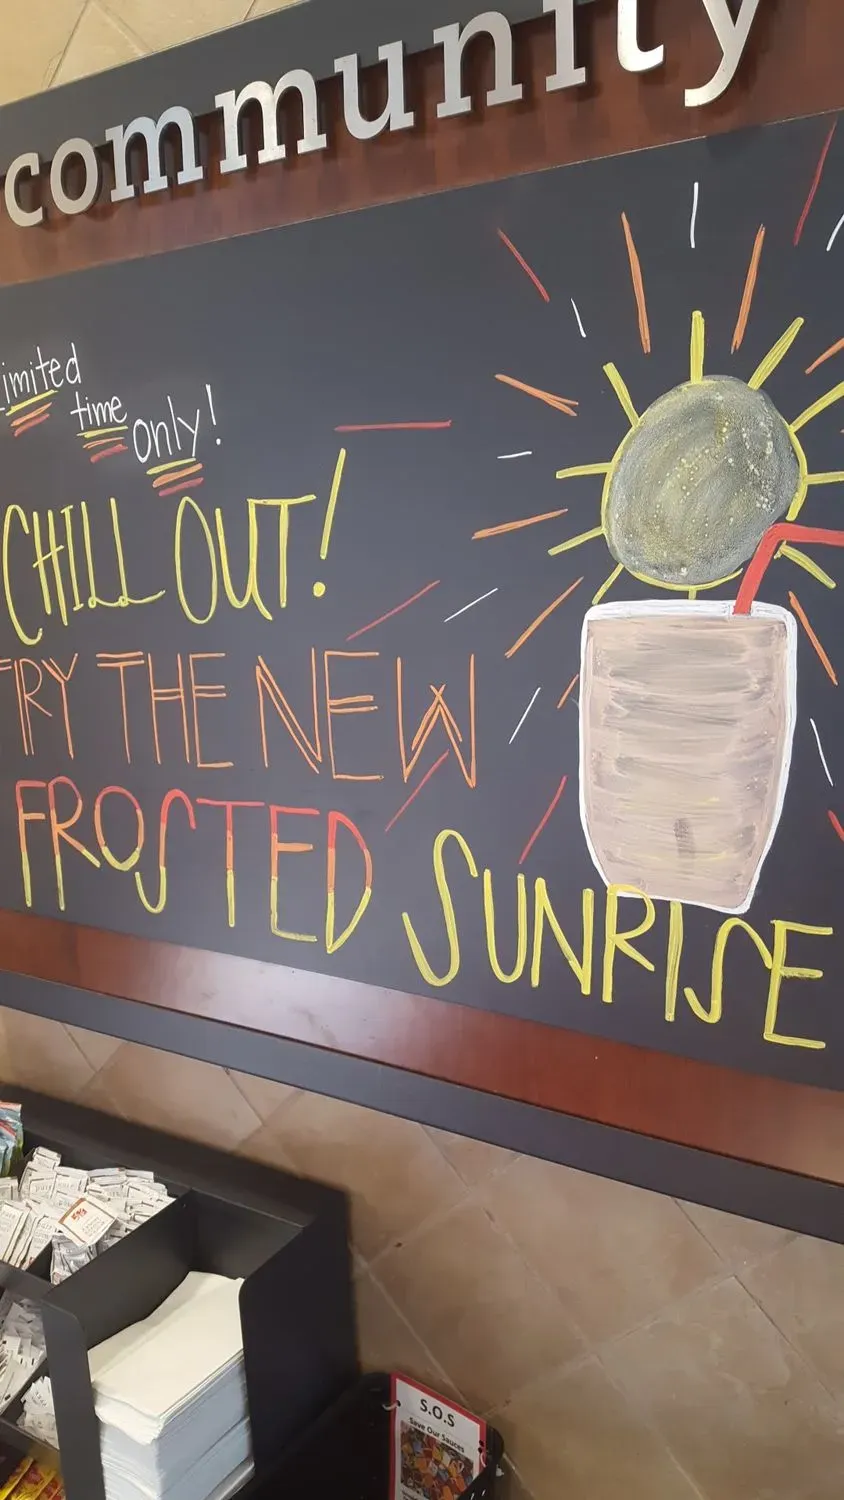 community
Limited
time
only!
CHILL OUT!
TRY THE NEW
FROSTED SUNRISE
S.O.S
Save Our Sauces